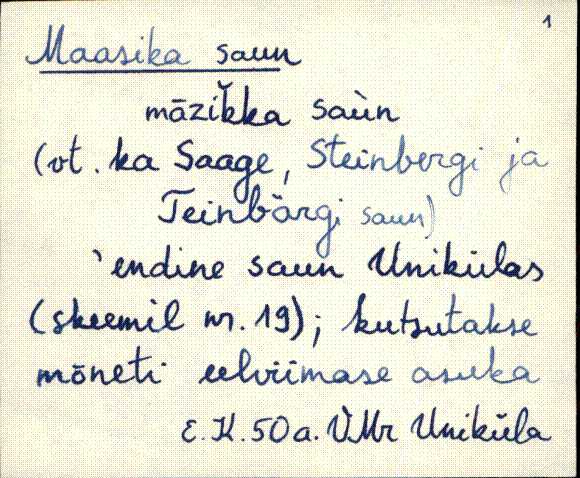 1
Maasika saun
māzik̆ka saùn
(vt. ka Saage, Steinbergi ja
Teinbärgi saun)
`endine saun Uniküla̱s
(skeemil nr. 19); kutsutakse
mõneti eelviimase asuka
E.K. 50 a. VMr Uniküla